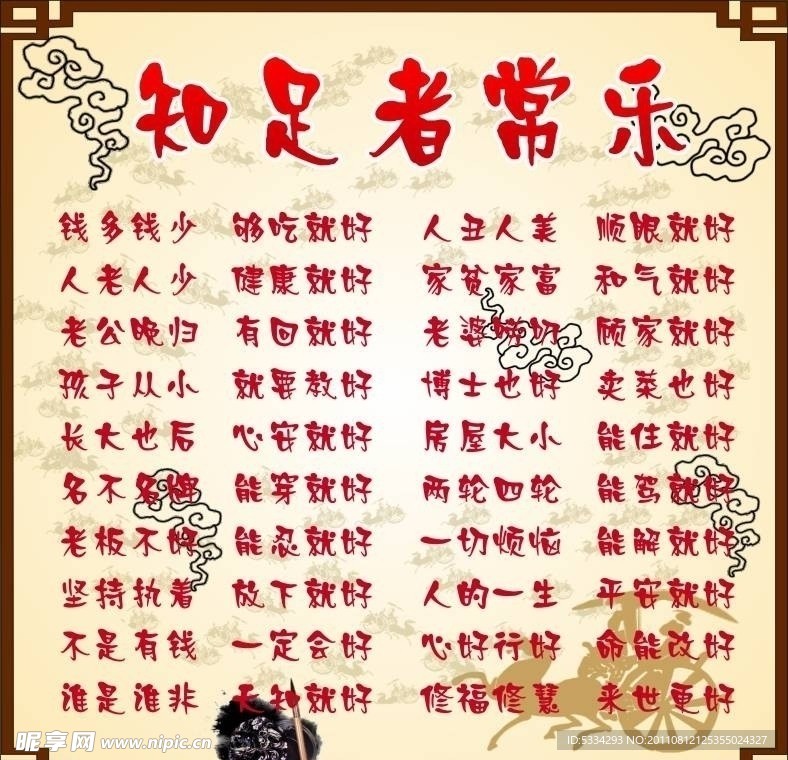 知足者常乐
钱多钱少 够吃就好 人丑人美 顺眼就好
人老人少 健康就好 家贫家富 和气就好
老公晚归 有回就好 老婆唠叨 顾家就好
孩子从小 就要教好 博士也好 卖菜也好
长大也后 心安就好 房屋大小 能住就好
名不名牌 能穿就好 两轮四轮 能驾就好
老板不好 能忍就好 一切烦恼 能解就好
坚持执着 放下就好 人的一生 平安就好
不是有钱 一定会好 心好行好 命能改好
谁是谁非 天知就好 修福修慧 来世更好
昵享网 www.nipic.cn
ID:5334293 NO:20110812125355024327